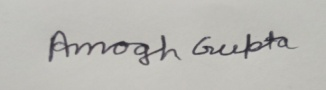 Amogh Gupta